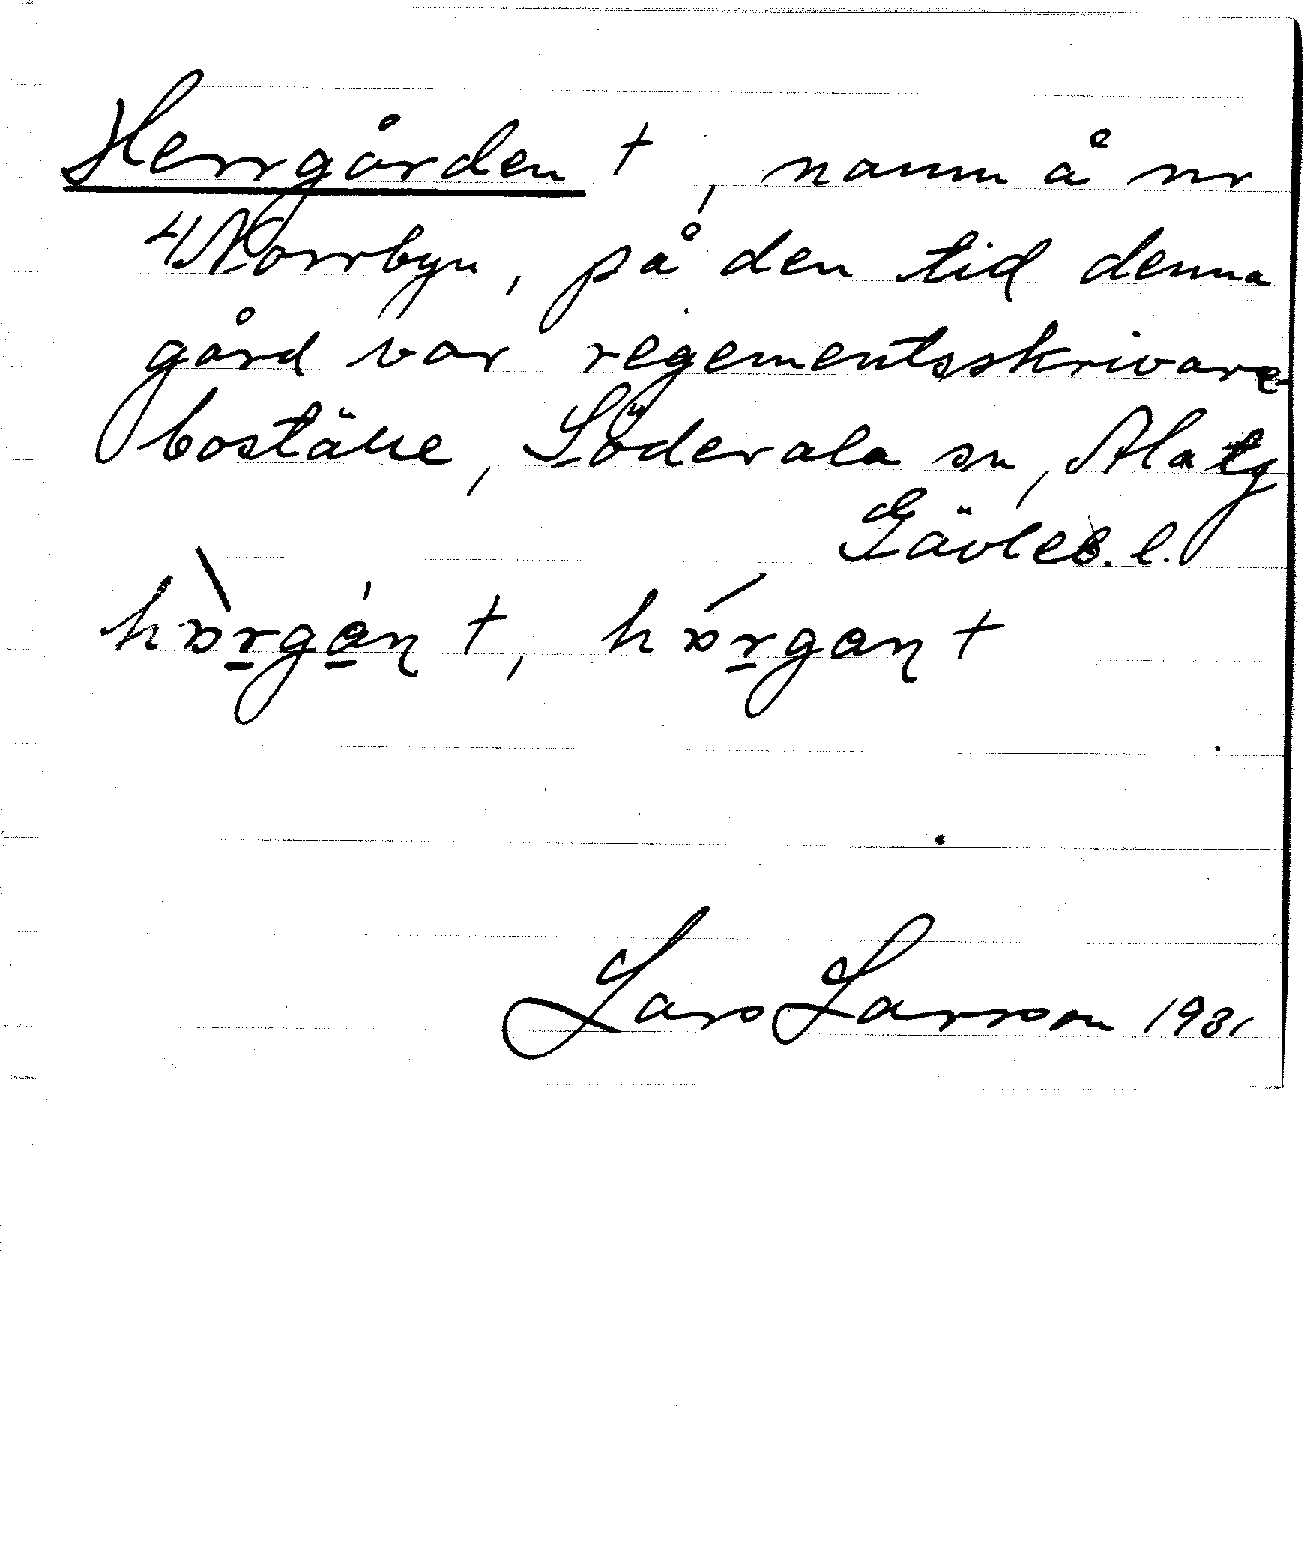 Herrgården †, namn å nr
4 Norrbyn, på den tid denna
gård var regementsskrivare-
boställe, Söderala sn, Ala tg
Gävleb. l.
hɤ̀r̠gá̠ɳ †, hɤ́r̠gaɳ †
Lars Larsson 1931